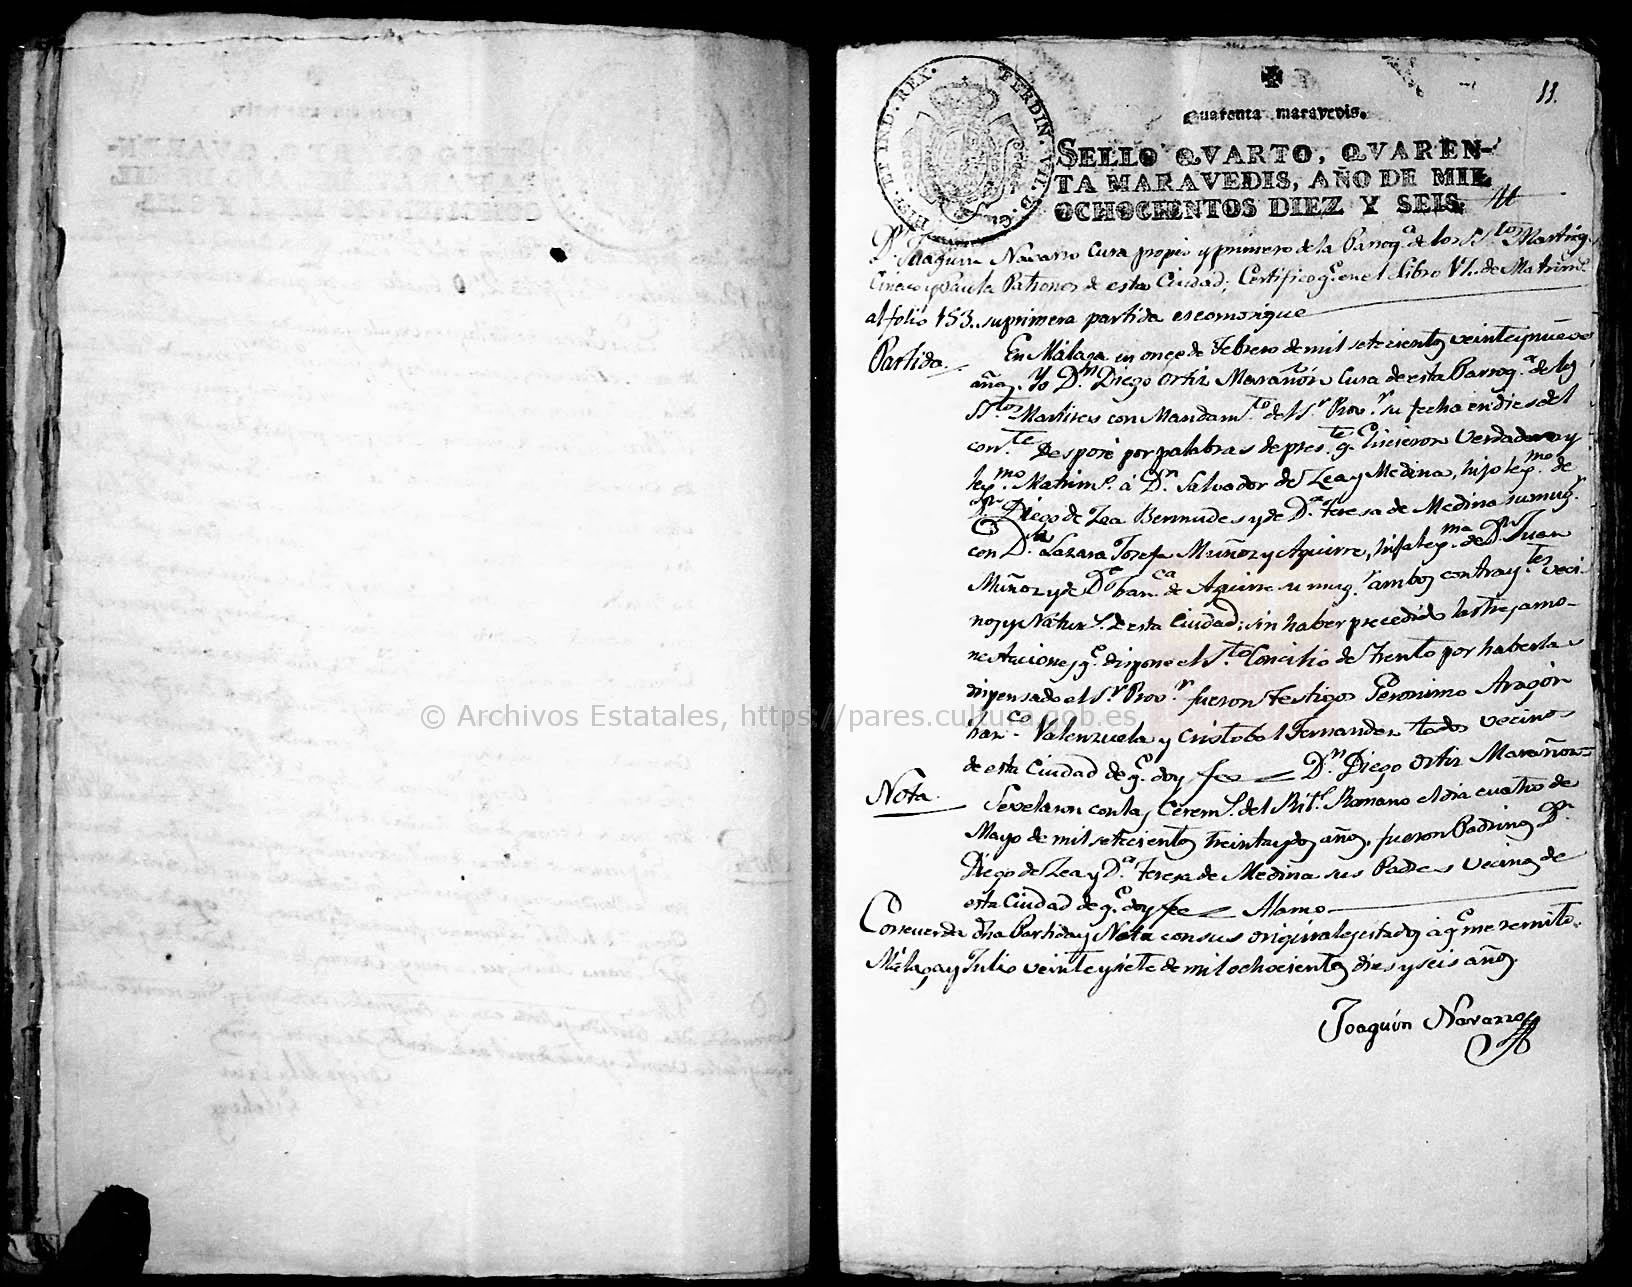 11.
Quarenta maravedis.
HISP. ET IND. REX. FERDIN. VII. D. G.
SELLO QVARTO, QVAREN-
TA MARAVEDIS, AÑO DE MIL
OCHOCIENTOS DIEZ Y SEIS.
Dn. Joaquin Navarro Cura propio y primero de la Parroqa. de los Stos. Martires
Ciriaco y Paula Patronos de esta Ciudad; Certifico qe. en el Libro de Matrims.
al folio 153. su primera partida es como sigue
Partida. En Málaga en once de Febrero de mil setecientos veinte y nueve
años. Yo Dn. Diego Ortiz Marañón Cura de esta Parroqa. de los
Stos. Martires con Mandamto. del Sr. Provr. su fecha en dies del
corrte. Desposé por palabras de preste. qe. hicieron verdadero y
legmo. Matrimo. á Dn. Salvador de Zea y Medina, hijo legmo. de
Dn. Diego de Zea Bermudes y de Da. Teresa de Medina su mugr.
con Da. Lazara Josefa Muñoz y Aguirre, hija legma. de Dn. Juan
Muñoz y de Da. Franca. de Aguirre su mugr. ambos contraytes. veci-
nos y Naturs. de esta Ciudad; sin haber precedido las tres amo-
nestaciones qe. dispone el Sto. Concilio de Trento por haberla
dispensado el Sr. Provr. fueron testigos Geronimo Aragón
Franco. Valenzuela y Cristobal Fernandez todos vecinos
de esta Ciudad de qe. doy fee = Dn. Diego Ortiz Marañon =
Nota. Se velaron con las Cerems. del Ritl. Romano el dia cuatro de
Mayo de mil setecientos treinta y dos años. fueron Padrinos Dn.
Diego de Zea y Da. Teresa de Medina sus Padres vecinos de
esta Ciudad de qe. doy fee = Alamo
Concuerda dha Partida y Nota con sus originales citados á qe. me remito.
Málaga y Julio veinte y siete de mil ochocientos dies y seis años.
Joaquin Navarro
© Archivos Estatales, https://pares.cultura.gob.es